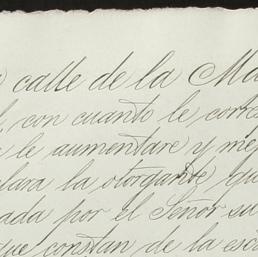 calle de la Ma
con cuanto le corres
le aumentare y mej
clara la otorgante, que
ada por el Señor su
que constan de la esc